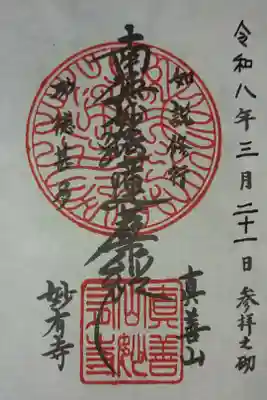 令和八年三月二十一日 参拝之砌
如説修行
南無妙法蓮華経
功徳甚多
真善山
妙有寺
真善
山妙
有寺